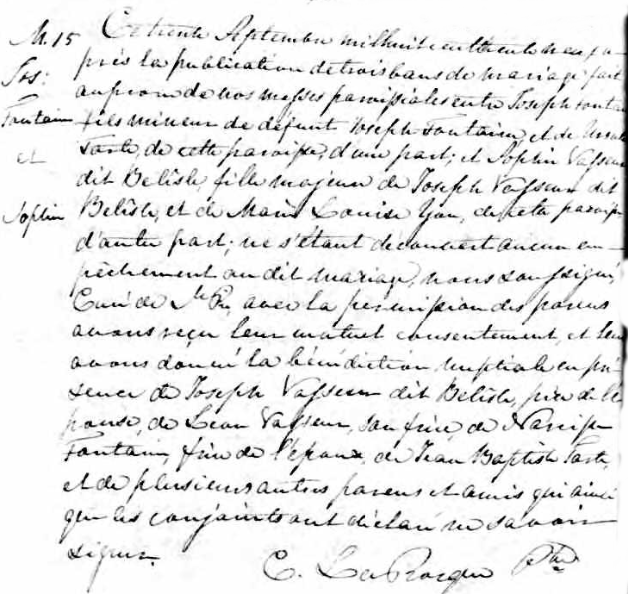 M. 15 Ce trente Septembre mil huit cent trente neuf, a-
Jos: près la publication de trois bans de mariage fait
au prone de nos messes paroissiales entre Joseph Fontain
Fontain fils mineur de défunt Joseph Fontaine, et de
et Tarte, de cette paroisse, d'une part; et Sophie Vasseur
dit Belisle, fille majeure de Joseph Vasseur dit
Sophie Belisle, et de Marie Louise Yon, de cette paroisse
d'autre part; ne s'étant découvert aucun em-
pêchement au dit mariage, nous soussigné,
Curé de Ste avec la permission des parens
avons reçu leur mutuel consentement, et leur
avons donné la bénédiction nuptiale en pré-
sence de Joseph Vasseur dit Belisle, père de l'é-
pouse, de Léon Vasseur, son frère, de Narcisse
Fontain, frère de l'époux, de Jean Baptiste Tarte,
et de plusieurs autres parens et amis qui ainsi
que les conjoints ont déclaré ne savoir
signer.
C. LaRocque Ptre